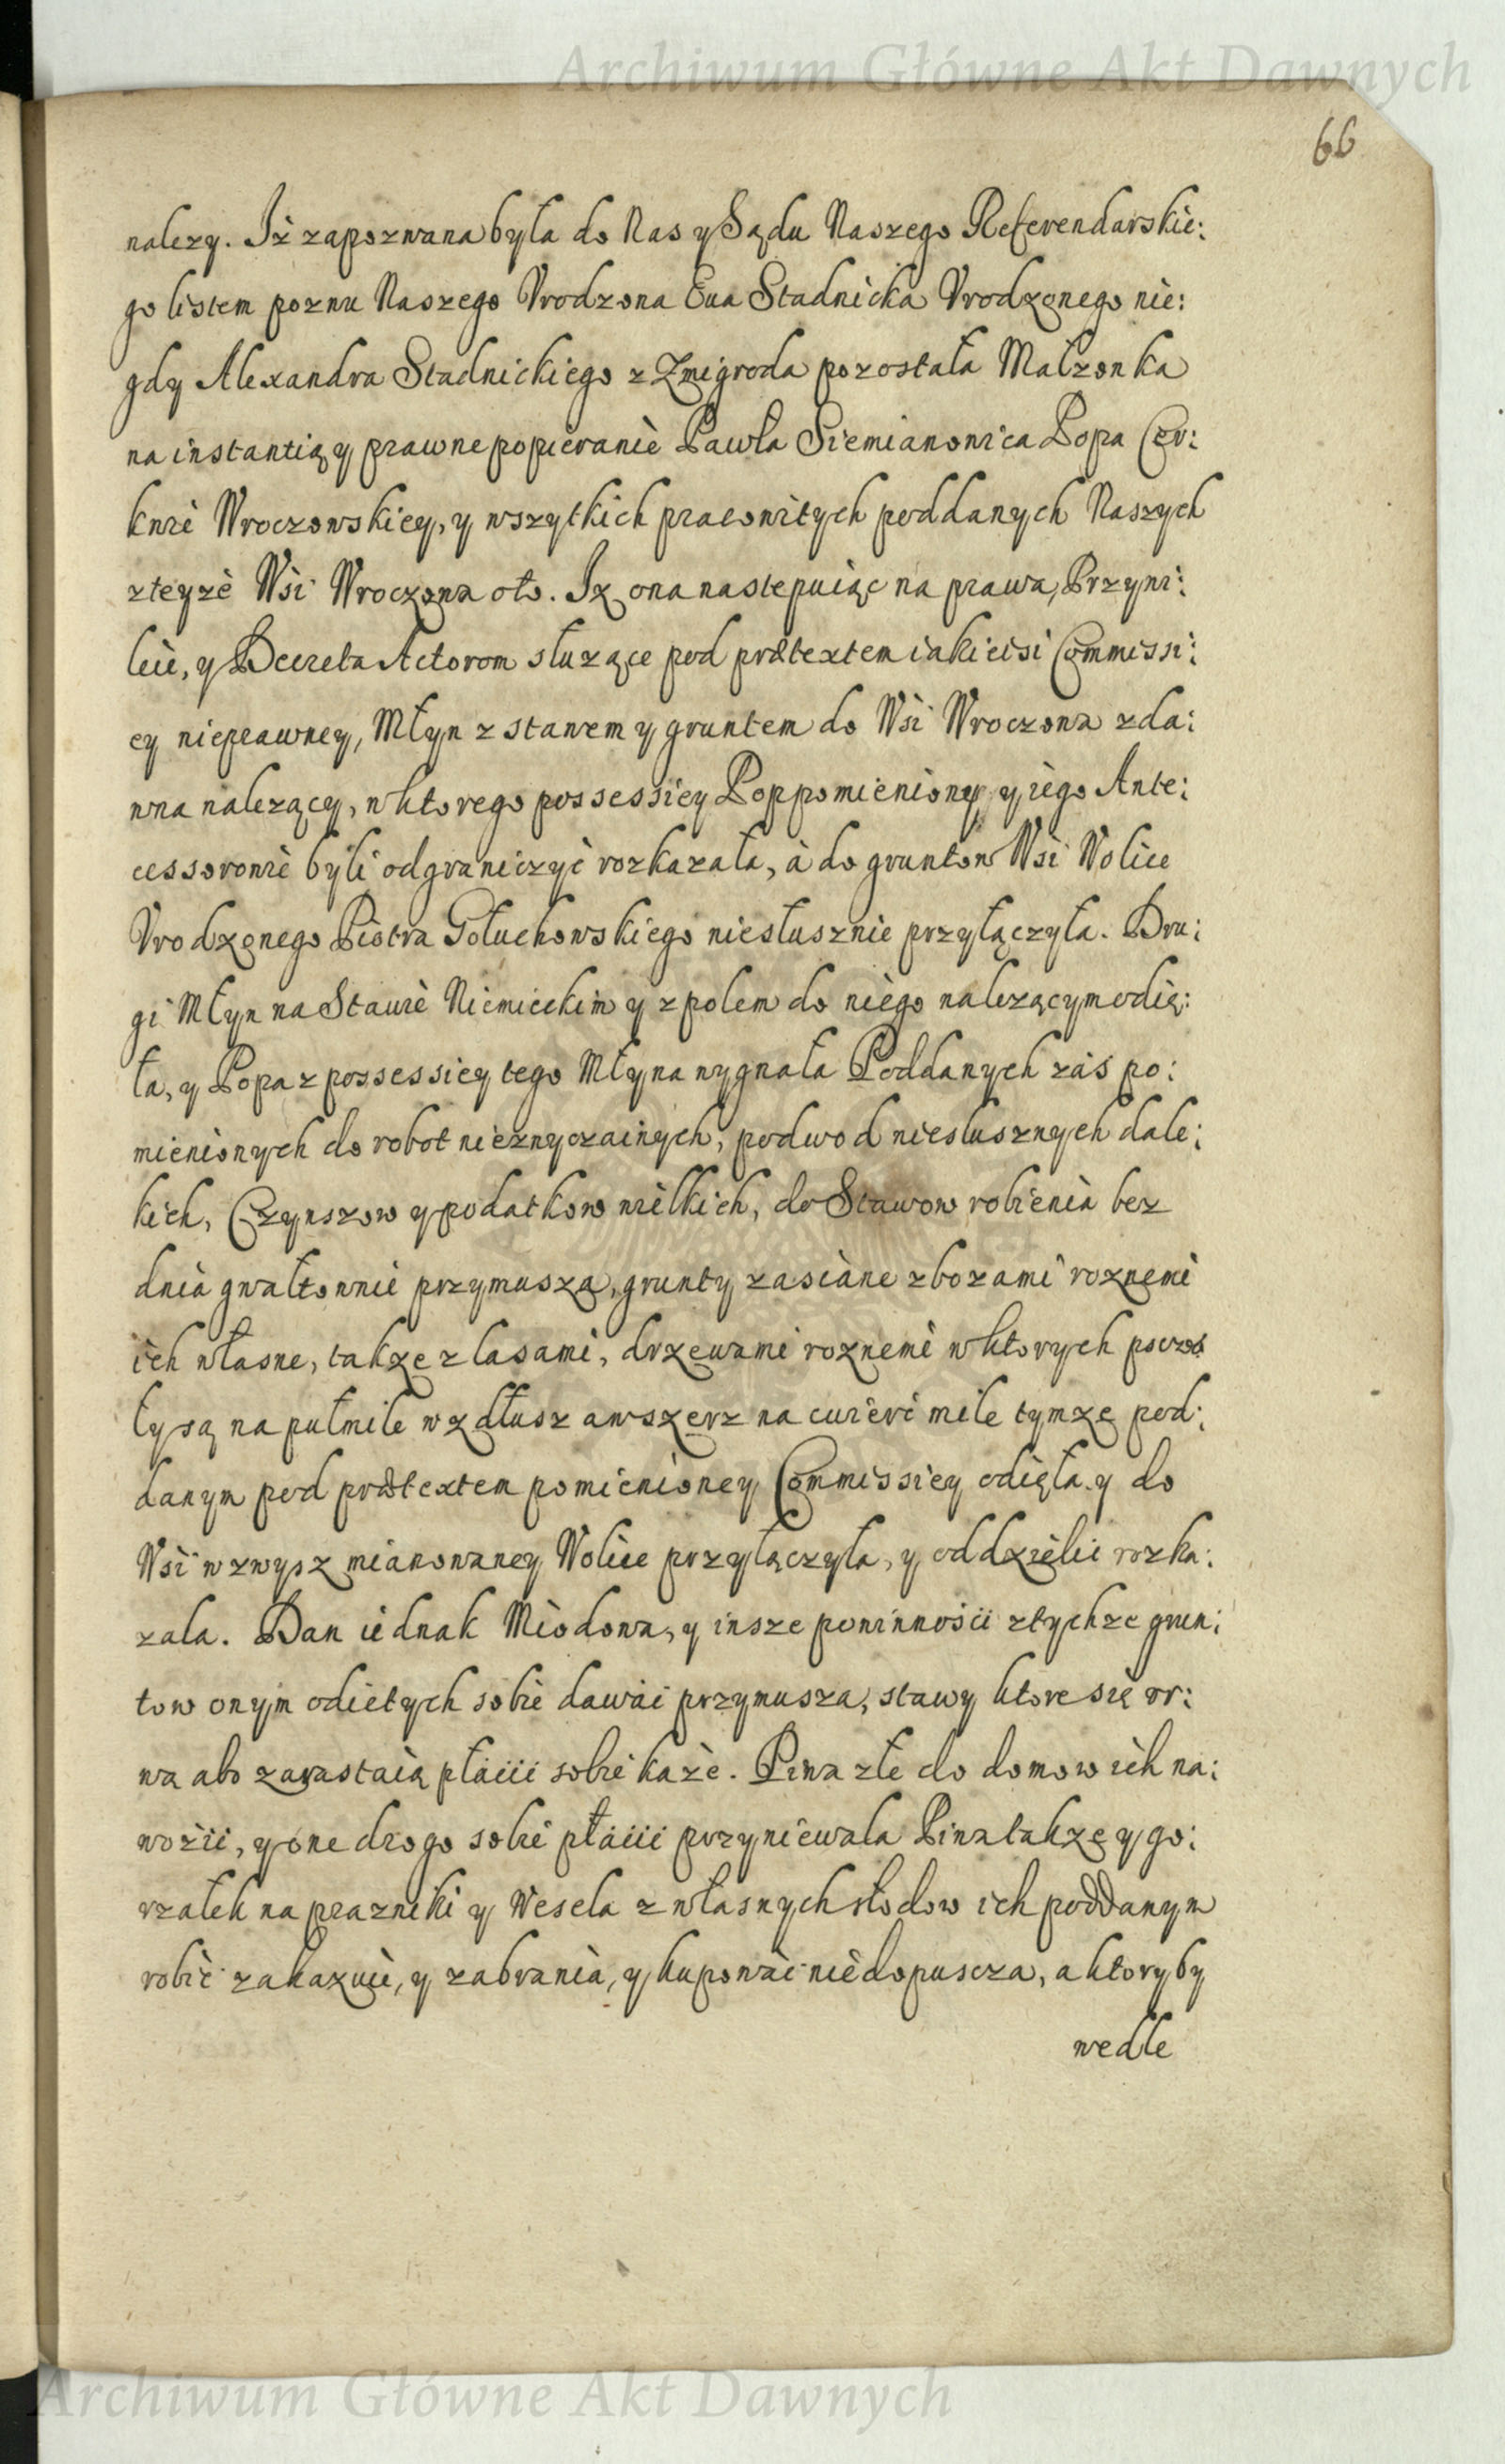 Archiwum Główne Akt Dawnych
66
nalezy. Iż zapozwana była do Nas y Sądu Naszego Referendarskie:
go listem pozwu Naszego Vrodzona Ewa Stadnicka Vrodzonego nie:
gdy Alexandra Stadnickiego z Zmigroda pozostała Małzonka
na instantią y prawne popieranie Pawła Siemianowica Popa Cer:
kwie Wroczowskiey, y wszytkich pracowitych poddanych Naszych
z teyze Wsi Wroczowa oto. Iz ona nastepuiąc na prawa, Przywi:
leie, y Decreta Actorom służące pod prætextem iakieisi Commissi:
ey nieprawney, Młyn z stawem y gruntem do Wsi Wroczowa zda:
wna nalezący, w ktorego possessiey Pop pomieniony y iego Ante:
cessorowie byli odgraniczyć rozkazała, à do gruntow Wsi Wolice
Vrodzonego Piotra Gołuchowskiego niesłusznie przyłączyła. Dru:
gi Młyn na Stawie Niemieckim y z polem do niego nalezącym odią:
ła, y Popa z possessiey tego Młyna wygnała Poddanych zaś po:
mienionych do robot niezwyczainych, podwod niesłusznych dale:
kich, Czynszow y podatkow wielkich, do Stawow robienia bez
dnia gwałtownie przymusza, grunty zasiane zbozami roznemi
ich własne, takze z lasami, drzewami roznemi w ktorych pszczo
ły są na pułmile wzdłusz a wszerz na cwierć mile tymze pod:
danym pod prætextem pomienioney Commissiey odięła y do
Wsi wzwysz mianowaney Wolice przyłączyła, y oddzielić rozka:
zala. Dan iednak Miodowa, y insze powinności z tychze grun:
tow onym odiętych sobie dawać przymusza, stawy ktore się rr:
wa abo zarastaią płacić sobie każe. Piwa złe do domow ich na:
wozić, y one drogo sobie płacić przyniewala Piwa takze y go:
rzałek na prazniki y Wesela z własnych słodow ich poddanym
robić zakazuie, y zabrania, y kupować niedopuscza, a ktoryby
wedle
Archiwum Główne Akt Dawnych